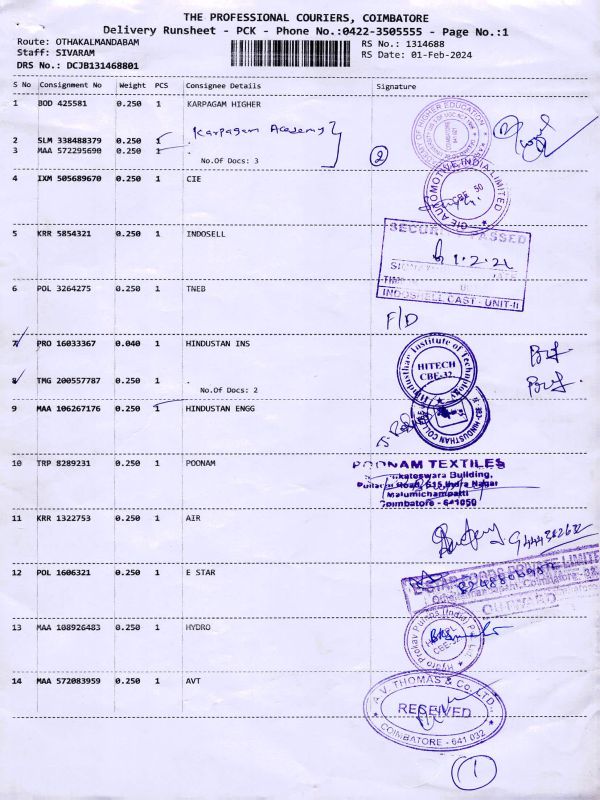 THE PROFESSIONAL COURIERS, COIMBATORE
Delivery Runsheet - PCK - Phone No.:0422-3505555 - Page No.:1
Route: OTHAKALMANDABAM
RS No.: 1314688
Staff: SIVARAM
RS Date: 01-Feb-2024
DRS No.: DCJB131468801
S No Consignment No Weight PCS Consignee Details Signature
1 BOD 425581 0.250 1 KARPAGAM HIGHER
Karpagam Academy
2 SLM 338488379 0.250 1 .
3 MAA 572295690 0.250 1 .
No.Of Docs: 3
2
4 IXM 505689670 0.250 1 CIE
CIE AUTOMOTIVE INDIA LIMITED
CBE 50
5 KRR 5854321 0.250 1 INDOSELL
SECURITY PASSED
1.2.24
INDOSHELL CAST - UNIT-II
6 POL 3264275 0.250 1 TNEB
F/D
7 PRO 16033367 0.040 1 HINDUSTAN INS
Hindusthan Institute of Technology
HITECH
CBE-32
8 TMG 200557787 0.250 1 .
No.Of Docs: 2
9 MAA 106267176 0.250 1 HINDUSTAN ENGG
10 TRP 8289231 0.250 1 POONAM
POONAM TEXTILES
Building,
Road, Indra Nagar
Malumichampatti
Coimbatore - 641050
11 KRR 1322753 0.250 1 AIR
12 POL 1606321 0.250 1 E STAR
E STAR FOODS PRIVATE LIMITED
OUTWARD
13 MAA 108926483 0.250 1 HYDRO
Hydro Prokav Pumps (India) Pvt. Ltd.
14 MAA 572083959 0.250 1 AVT
A.V. THOMAS & Co. LTD.
RECEIVED
COIMBATORE - 641 032
1